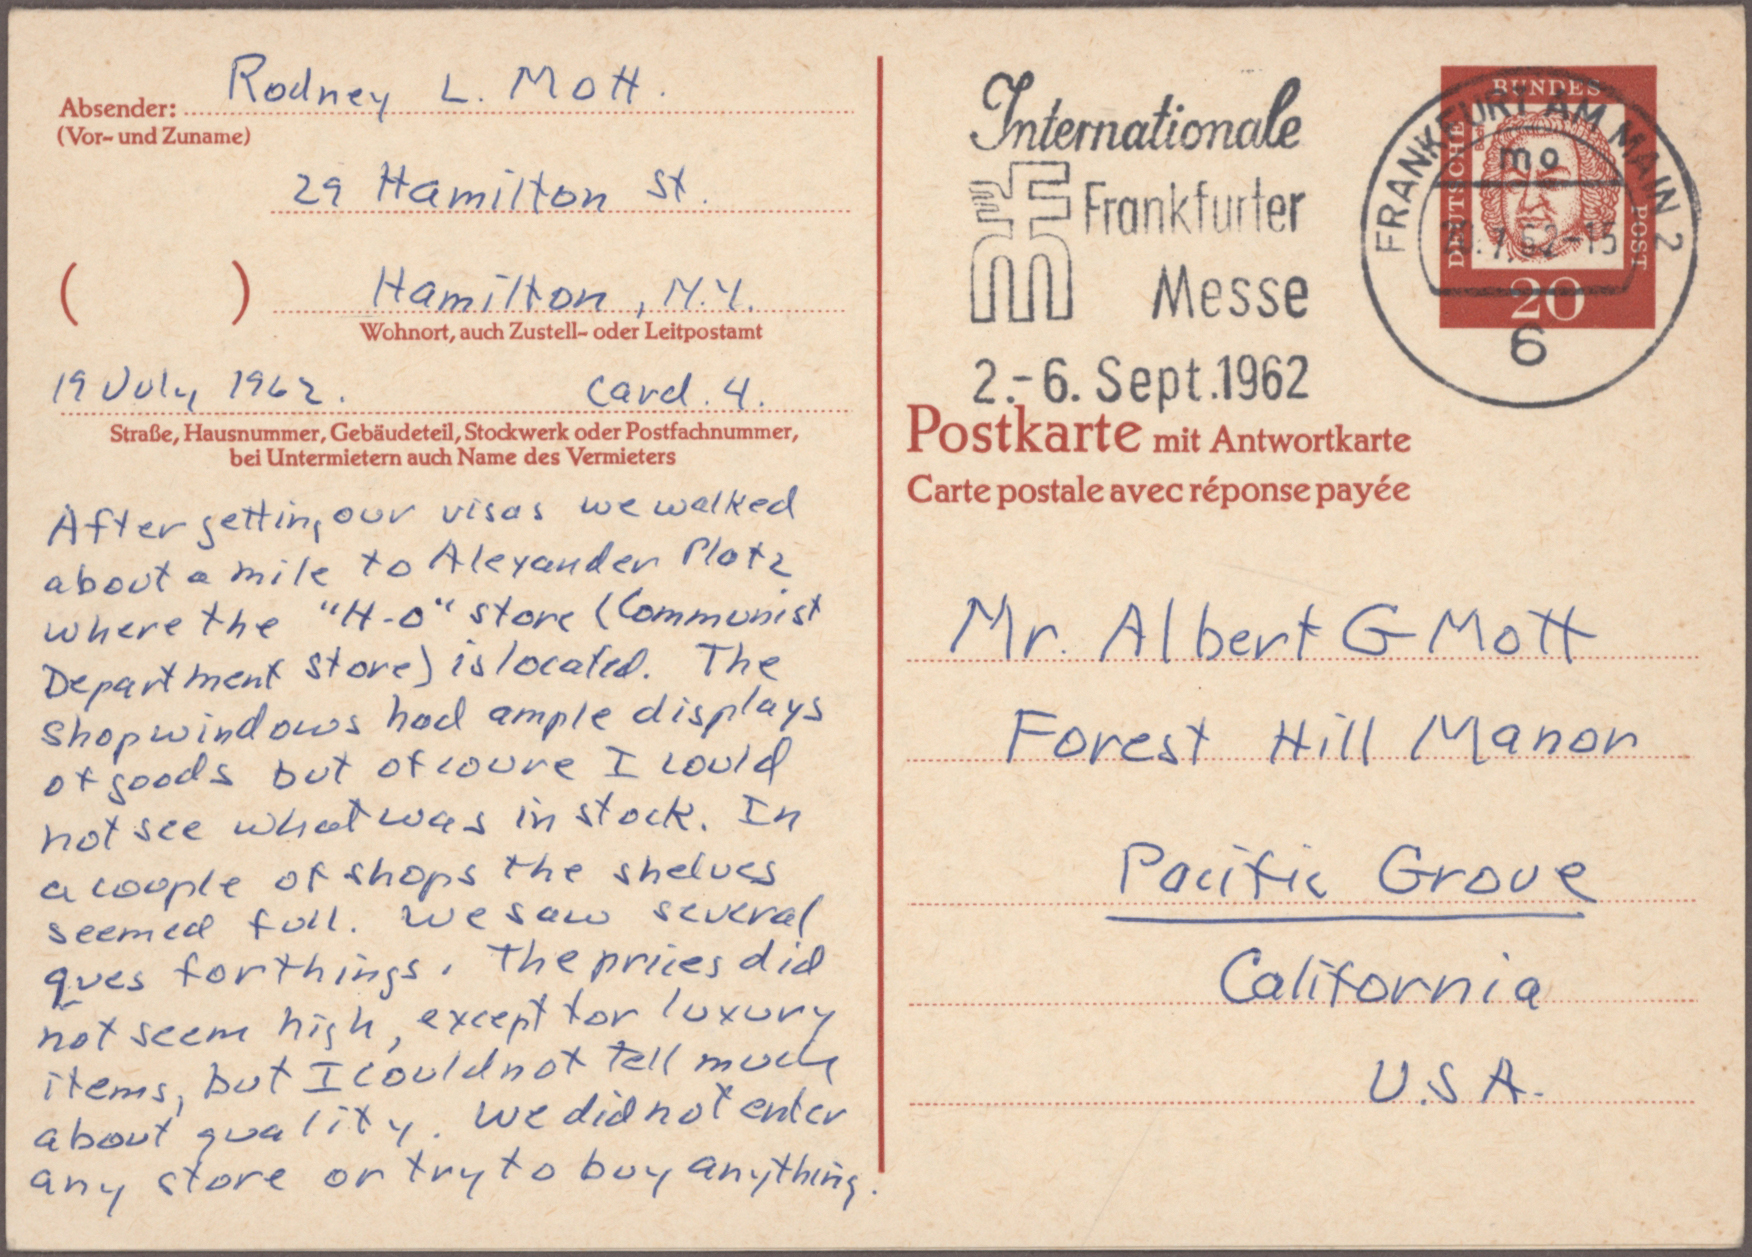 Absender: Rodney L. Mott.
(Vor- und Zuname)
29 Hamilton St.
( ) Hamilton, N.Y.
Wohnort, auch Zustell- oder Leitpostamt
19 July 1962. Card. 4.
Straße, Hausnummer, Gebäudeteil, Stockwerk oder Postfachnummer,
bei Untermietern auch Name des Vermieters
After getting our visas we walked
about a mile to Alexander Platz
where the "H-O" store (Communist
Department store) is located. The
shop windows had ample displays
of goods but of coure I could
not see what was in stock. In
a couple of shops the shelves
seemed full. We saw several
ques for things. The prices did
not seem high, except for luxury
items, but I could not tell much
about quality. We did not enter
any store or try to buy anything.
Internationale
Frankfurter
Messe
2.-6. Sept. 1962
DEUTSCHE BUNDES POST
20
FRANKFURT AM MAIN 2
mo
.7.62-15
6
Postkarte mit Antwortkarte
Carte postale avec réponse payée
Mr. Albert G Mott
Forest Hill Manor
Pacific Grove
California
U.S.A.